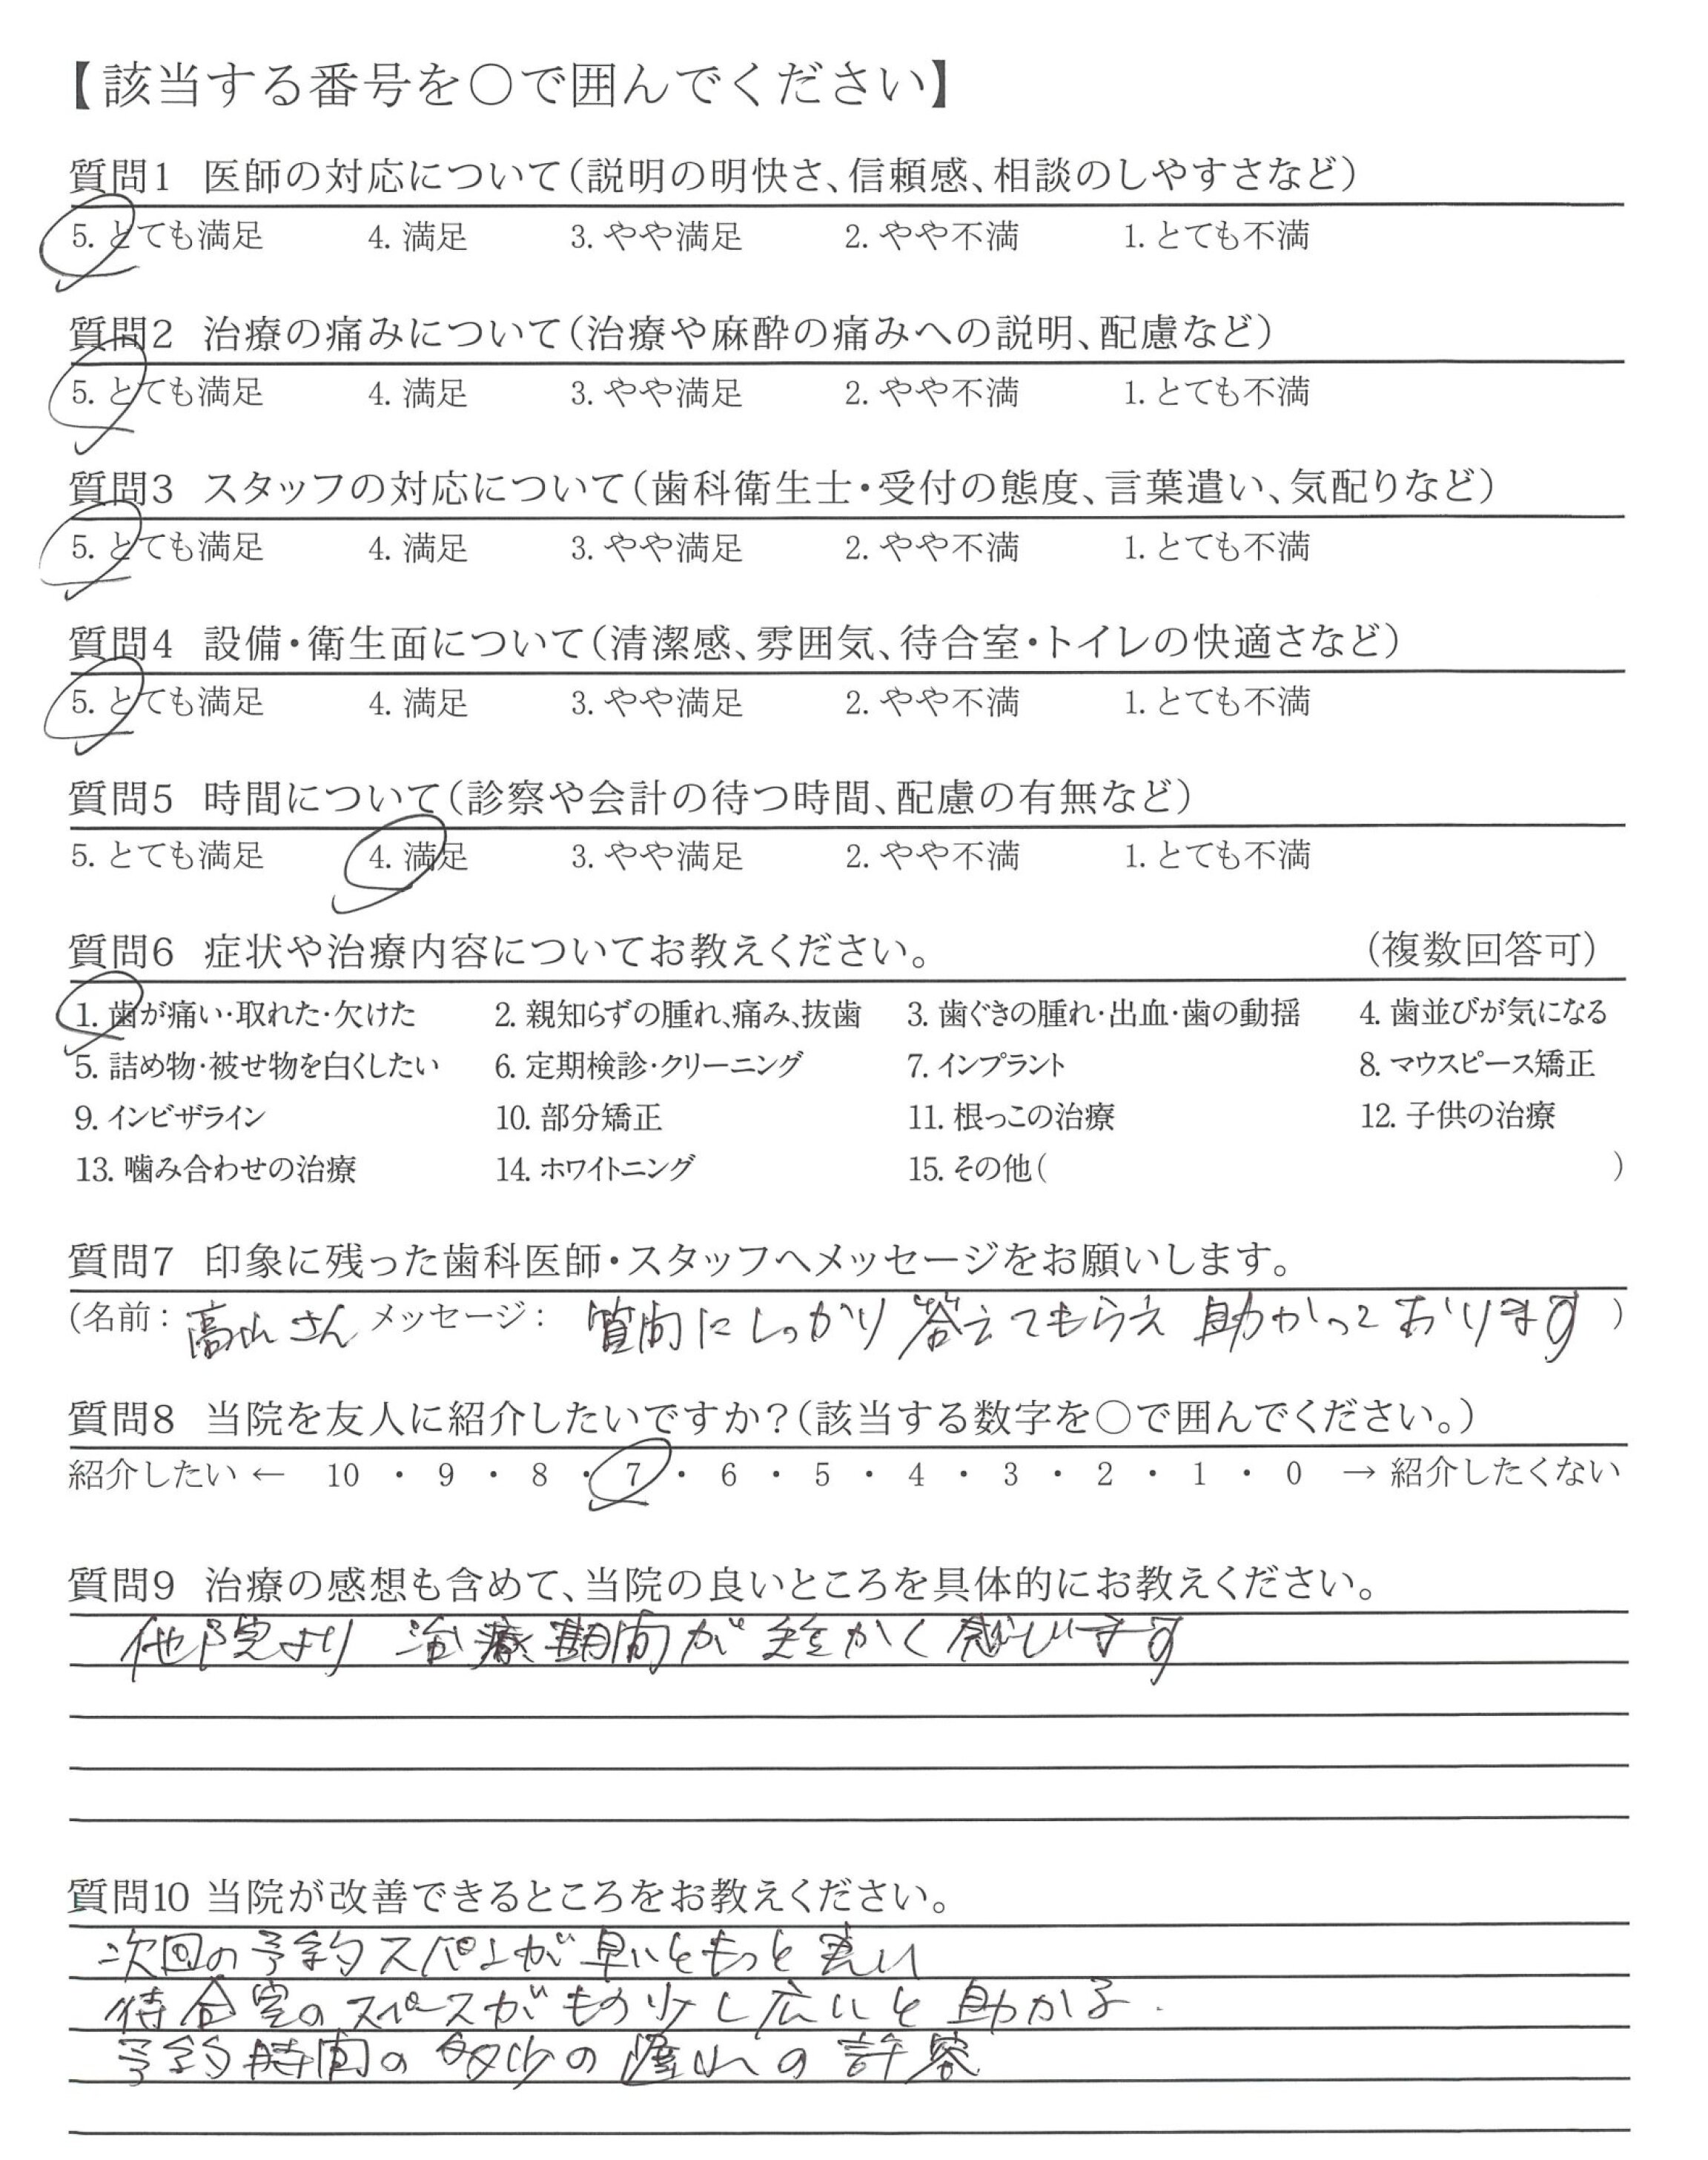 【該当する番号を○で囲んでください】
質問1 医師の対応について(説明の明快さ、信頼感、相談のしやすさなど)
5. とても満足 4. 満足 3. やや満足 2. やや不満 1. とても不満
質問2 治療の痛みについて(治療や麻酔の痛みへの説明、配慮など)
5. とても満足 4. 満足 3. やや満足 2. やや不満 1. とても不満
質問3 スタッフの対応について(歯科衛生士・受付の態度、言葉遣い、気配りなど)
5. とても満足 4. 満足 3. やや満足 2. やや不満 1. とても不満
質問4 設備・衛生面について(清潔感、雰囲気、待合室・トイレの快適さなど)
5. とても満足 4. 満足 3. やや満足 2. やや不満 1. とても不満
質問5 時間について(診察や会計の待つ時間、配慮の有無など)
5. とても満足 4. 満足 3. やや満足 2. やや不満 1. とても不満
質問6 症状や治療内容についてお教えください。 (複数回答可)
1. 歯が痛い・取れた・欠けた 2. 親知らずの腫れ、痛み、抜歯 3. 歯ぐきの腫れ・出血・歯の動揺 4. 歯並びが気になる
5. 詰め物・被せ物を白くしたい 6. 定期検診・クリーニング 7. インプラント 8. マウスピース矯正
9. インビザライン 10. 部分矯正 11. 根っこの治療 12. 子供の治療
13. 噛み合わせの治療 14. ホワイトニング 15. その他( )
質問7 印象に残った歯科医師・スタッフへメッセージをお願いします。
(名前: 高山さん メッセージ: 質問にしっかり答えてもらえ助かっております )
質問8 当院を友人に紹介したいですか?(該当する数字を○で囲んでください。)
紹介したい ← 10 ・ 9 ・ 8 ・ 7 ・ 6 ・ 5 ・ 4 ・ 3 ・ 2 ・ 1 ・ 0 → 紹介したくない
質問9 治療の感想も含めて、当院の良いところを具体的にお教えください。
他院より 治療期間が短かく感じます
質問10 当院が改善できるところをお教えください。
次回の予約スパンが早いともっと良い
待合室のスペースがもう少し広いと助かる.
予約時間の多少の遅れの許容